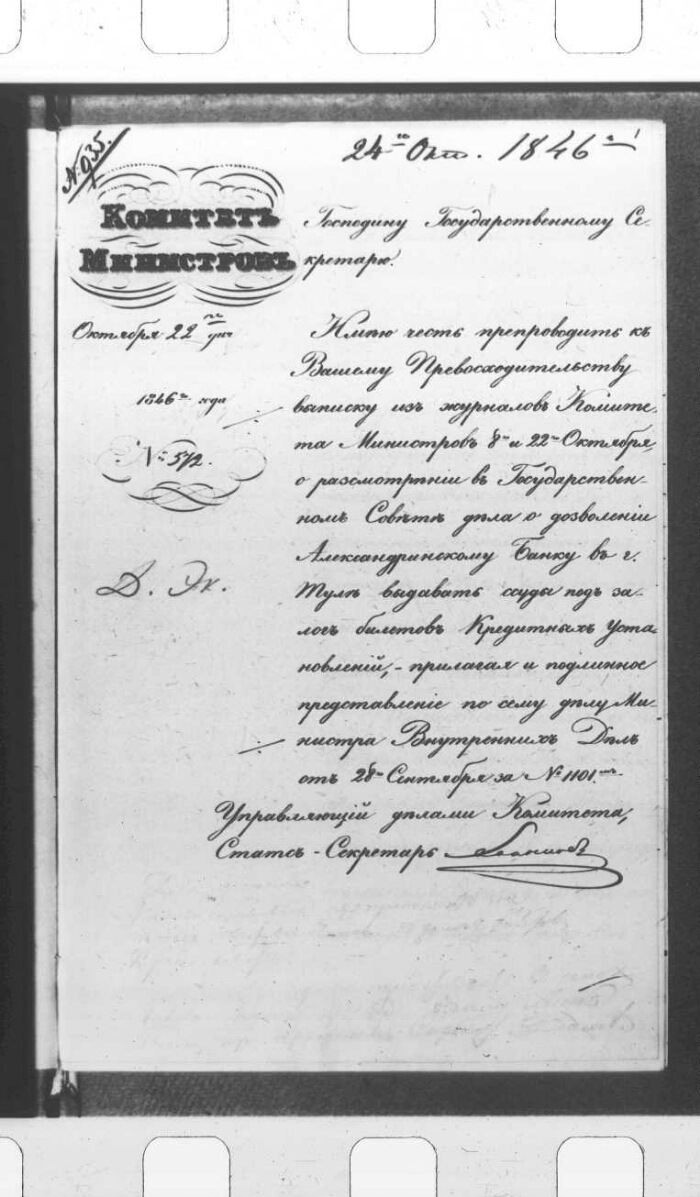 № 935.
24го Окт. 1846го
Комитетъ
Министровъ
Октября 22го дня
1846го года
№ 572.
Д. Эк.
Господину Государственному Се-
кретарю.
Имѣю честь препроводить къ
Вашему Превосходительству
выписку изъ журналовъ Комите-
та Министровъ 8го и 22го Октября,
о разсмотрѣніи въ Государствен-
номъ Совѣтѣ дѣла о дозволеніи
Александринскому Банку въ г.
Тулѣ выдавать ссуды подъ за-
логъ билетовъ Кредитныхъ уста-
новленій,- прилагая и подлинное
представленіе по сему дѣлу Ми-
нистра Внутреннихъ Дѣлъ
отъ 28го Сентября за № 1101.мъ
Управляющій дѣлами Комитета,
Статсъ-Секретарь